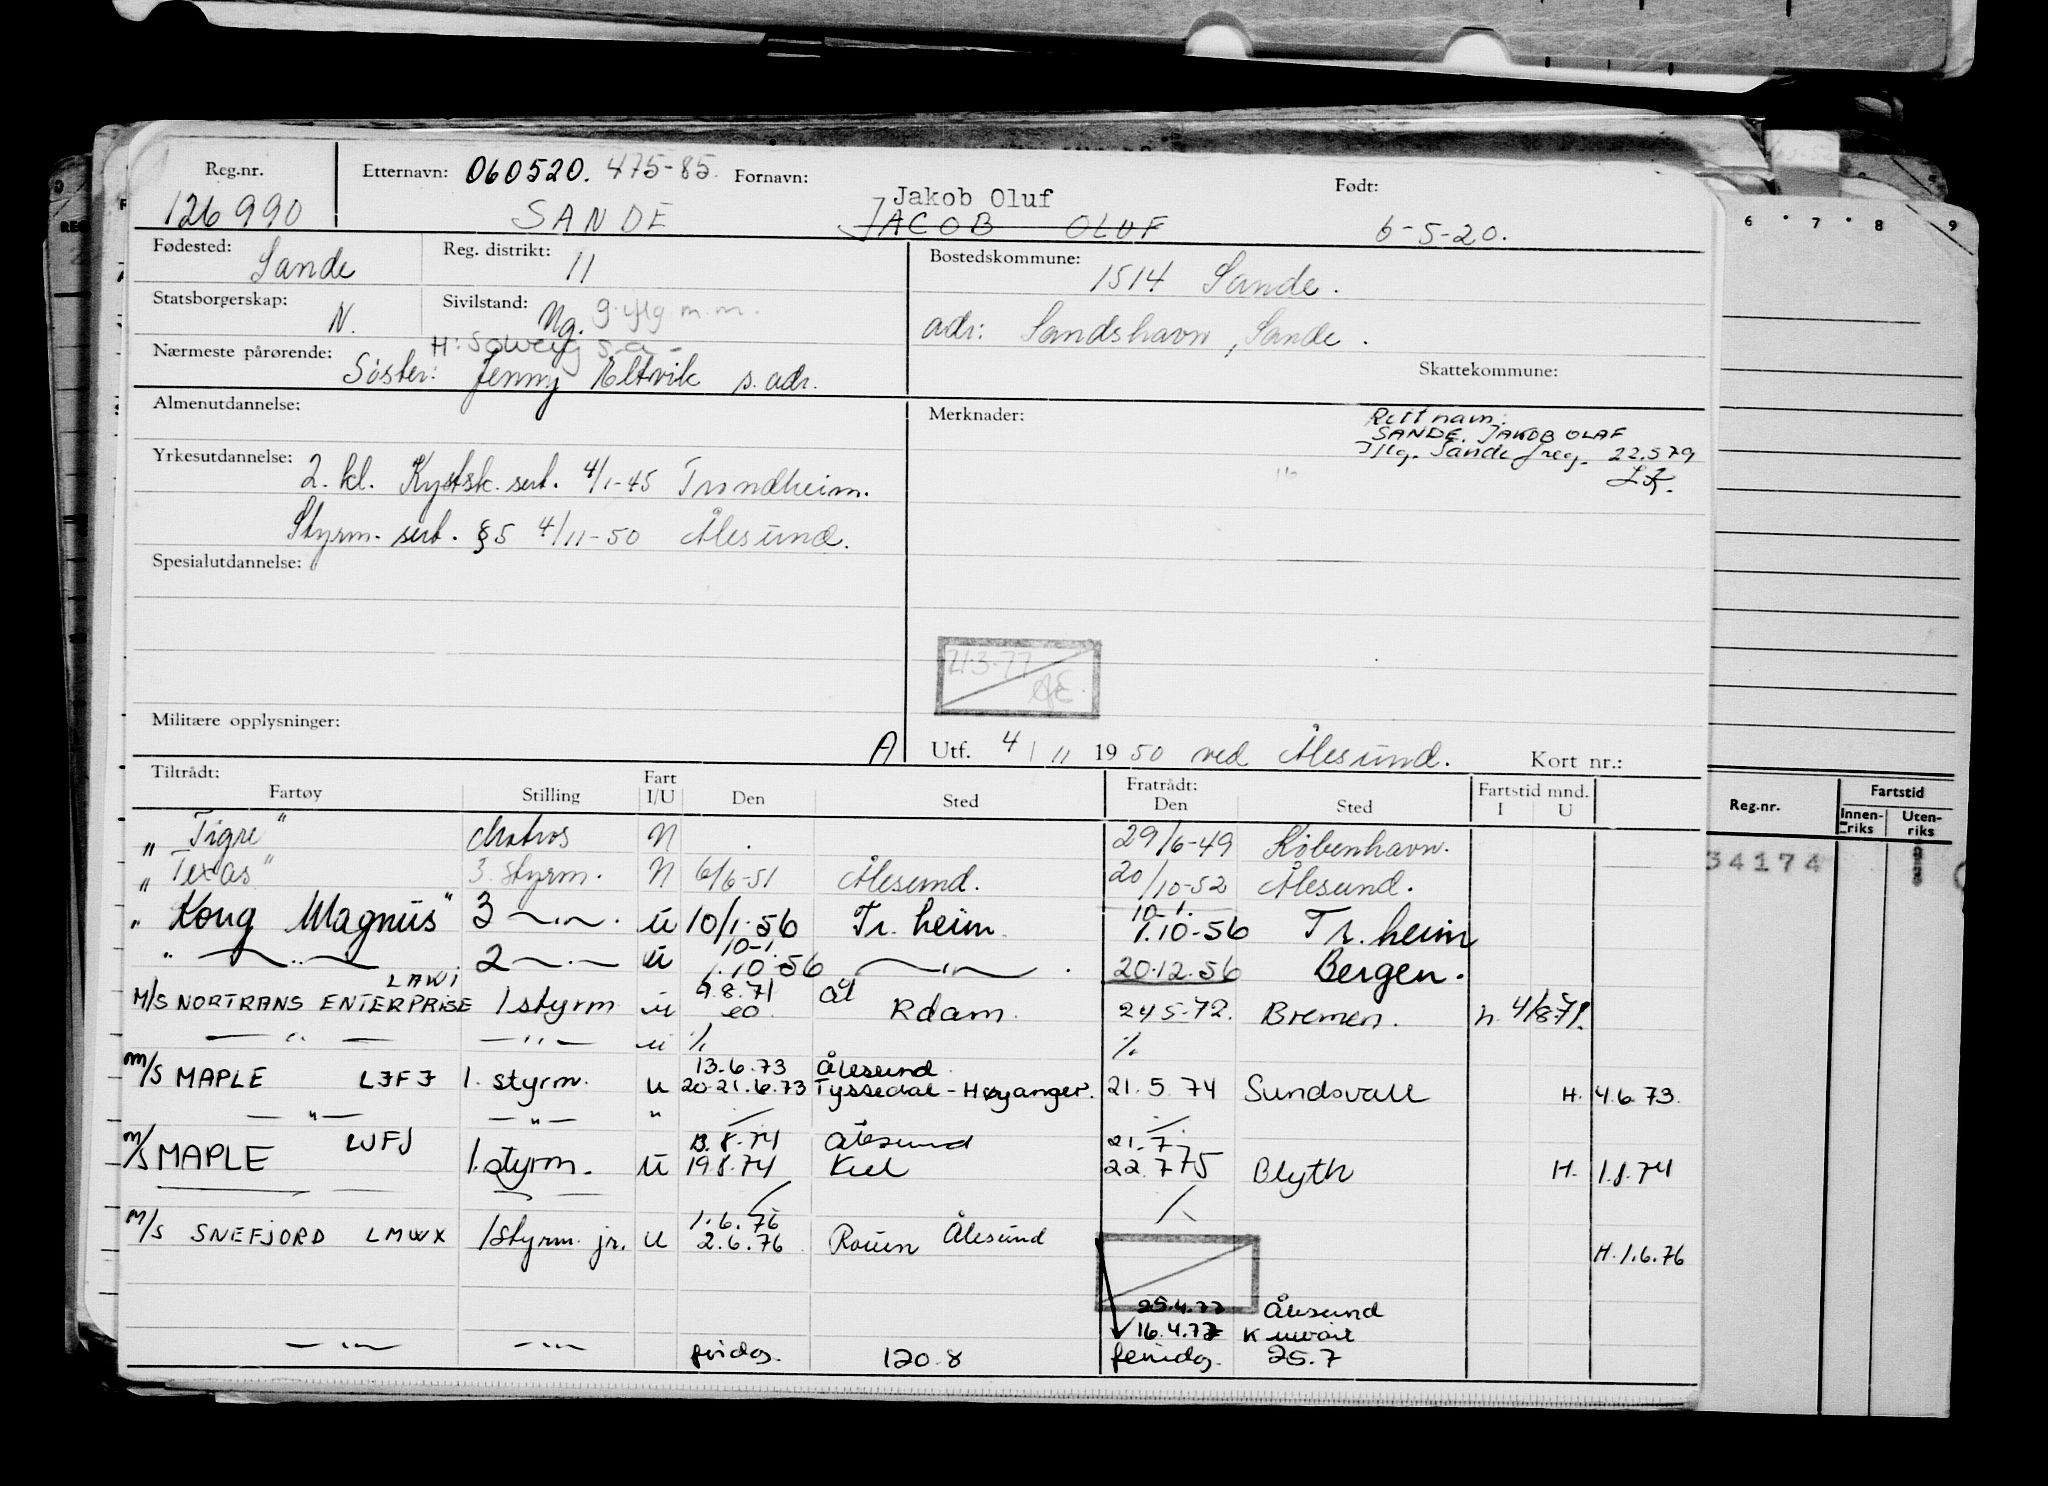 Reg.nr. Etternavn: 060520. 475-85. Fornavn: Født:
Jakob Oluf
126990 SANDE JACOB OLUF 6-5-20.
Fødested: Sande Reg. distrikt: 11 Bostedskommune: 1514 Sande.
Statsborgerskap: N. Sivilstand: Ug. g. iflg m.m. adr: Sandshavn, Sande.
H: Solveig s.a.
Nærmeste pårørende: Søster: Jenny Eltvik s. adr. Skattekommune:
Almenutdannelse: Merknader: Rett navn:
SANDE, JAKOB OLAF
Iflg. Sande freg. 22.5 79
Yrkesutdannelse: 2. kl. Kystsk. sert. 4/1-45 Trondheim.
Styrm. sert. §5 4/11-50 Ålesund.
Spesialutdannelse:
21.3.77
Militære opplysninger:
A Utf. 4/11 1950 ved Ålesund. Kort nr.:
Tiltrådt: Fart Fratrådt: Fartstid mnd.
Fartøy Stilling I/U Den Sted Den Sted I U
" Tigre " Matros N 29/6-49 København.
" Texas " 3. styrm. N 6/6-51 Ålesund. 20/10-52 Ålesund.
" Kong Magnus " 3 —"—. U 10/1-56 Tr. heim 10-1. 1.10-56 Tr. heim
" —"— 2 —"— U 10-1. 1.10-56 —"—. 20.12.56 Bergen.
LAWI 9.8.71 Ål
M/S NORTRANS ENTERPRISE 1 styrm U eo. Rdam. 24 5-72. Bremen. h. 4/8-71.
—"— —"— U % %
13.6.73 Ålesund
M/S MAPLE LJFJ 1. styrm. U 20-21.6.73 Tyssedal - Høyanger. 21.5.74 Sundsvall H. 4.6.73.
—"— —"— "
LJFJ 13.8.74 Ålesund 21.7.
M/S MAPLE 1. styrm. U 19.8.74 Kiel 22.7 75 Blyth H. 1.8.74
1.6.76
M/S SNEFJORD LMWX 1 styrm. jr. U 2.6.76 Rouen Ålesund H. 1.6.76
25.4.77 Ålesund
16.4.77 Kuwait
—"— —"— feridg. 120.8 feridg. 25.7
6 7 8 9
Reg.nr. Fartstid
Innenriks Utenriks
34174